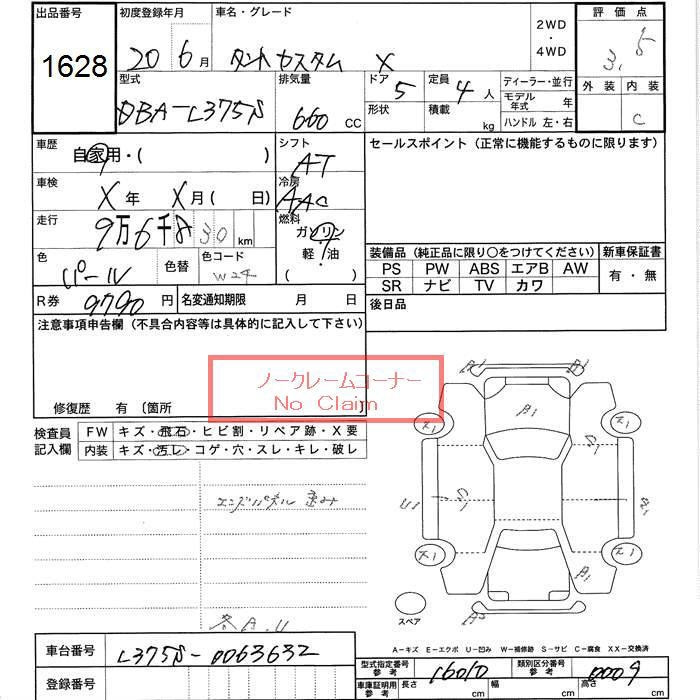 出品番号
1628
初度登録年月
20年6月
車名・グレード
タントカスタム X
2WD
・
4WD
評価点
3.5
型式
DBA-L375S
排気量
660 CC
ドア
5
形状
定員
4人
積載
kg
ディーラー・並行
モデル年式 年
ハンドル 左・右
外装 内装
C
車歴
自家用・( )
シフト
AT
セールスポイント (正常に機能するものに限ります)
車検
X年 X月( 日)
冷房
AAC
走行
9万6千8 30 km
燃料
ガソリン
軽・油
( )
色
パール
色替
色コード
W24
装備品 (純正品に限り○をつけてください)
PS PW ABS エアB AW
SR ナビ TV カワ
新車保証書
有・無
R券 9790円
名変通知期限 月 日
後日品
注意事項申告欄 (不具合内容等は具体的に記入して下さい)
ノークレームコーナー
No Claim
修復歴 有 〔箇所 〕
検査員
記入欄
FW キズ・飛石・ヒビ割・リペア跡・X要
内装 キズ・汚レ・コゲ・穴・スレ・キレ・破レ
エンドパネル 歪み
各A.U
B1
U1
スペア
A-キズ E-エクボ U-凹み W-補修跡 S-サビ C-腐食 XX-交換済
車台番号
L375S-0063632
登録番号
型式指定番号
参考
16010
類別区分番号
参考
0009
車庫証明用
参考
長さ cm 幅 cm 高さ cm